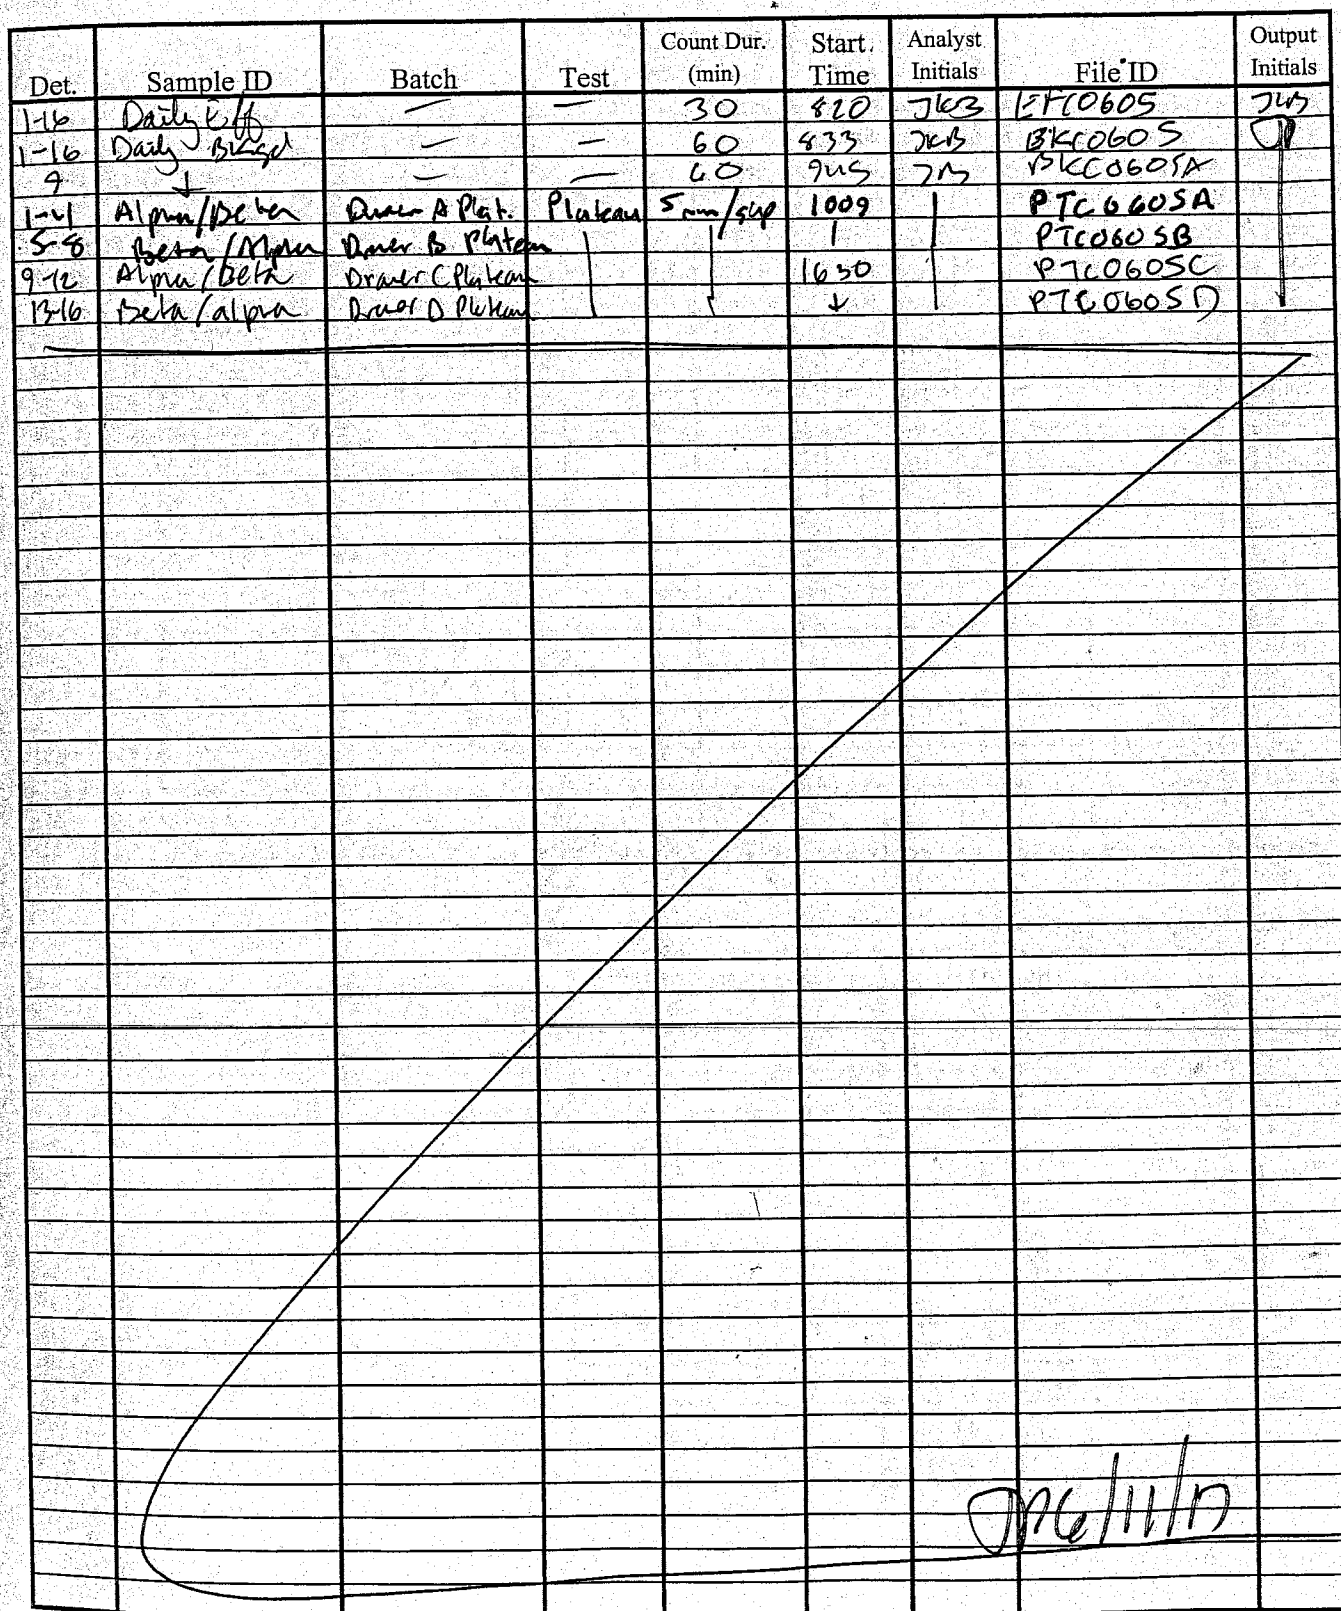 Det. Sample ID Batch Test Count Dur. (min) Start Time Analyst Initials File ID Output Initials
1-16 Daily Eff — — 30 820 JKB EFC0605 JKB
1-16 Daily Bkgd — — 60 833 JKB BKC0605
9 ↓ — — 60 945 BKC0605A
1-4 Alpha/Beta Drawer A Plat. Plateau 5 min/step 1009 PTC0605A
5-8 Beta/Alpha Drawer B Plateau PTC0605B
9-12 Alpha/Beta Drawer C Plateau 1630 PTC0605C
13-16 Beta/alpha Drawer D Plateau ↓ PTC0605D
6/11/17